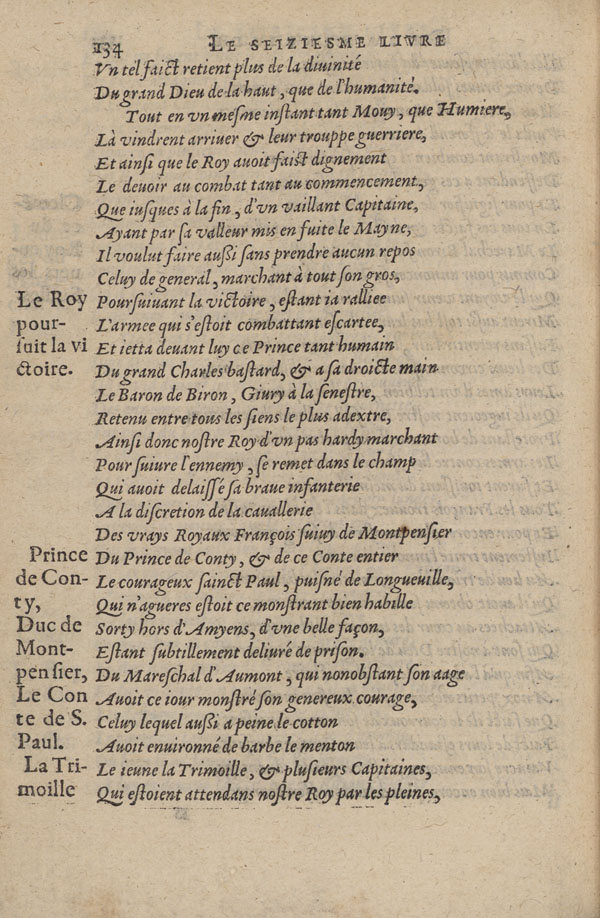 134 LE SEIZIESME LIVRE
Vn tel faict retient plus de la diuinité
Du grand Dieu de la haut, que de l'humanité.
Tout en vn mesme instant tant Mouy, que Humiere,
Là vindrent arriuer & leur trouppe guerriere,
Et ainsi que le Roy auoit faict dignement
Le deuoir au combat tant au commencement,
Que iusques à la fin, d'vn vaillant Capitaine,
Ayant par sa valleur mis en fuite le Mayne,
Il voulut faire aussi sans prendre aucun repos
Celuy de general, marchant à tout son gros,
Poursuiuant la victoire, estant ia ralliee
L'armee qui s'estoit combattant escartee,
Et ietta deuant luy ce Prince tant humain
Du grand Charles bastard, & a sa droicte main
Le Baron de Biron, Giury à la senestre,
Retenu entre tous les siens le plus adextre,
Ainsi donc nostre Roy d'vn pas hardy marchant
Pour suiure l'ennemy, se remet dans le champ
Qui auoit delaissé sa braue infanterie
A la discretion de la cauallerie
Des vrays Royaux François suiuy de Montpensier
Du Prince de Conty, & de ce Conte entier
Le courageux sainct Paul, puisné de Longueuille,
Qui n'agueres estoit ce monstrant bien habille
Sorty hors d'Amyens, d'vne belle façon,
Estant subtillement deliuré de prison.
Du Mareschal d'Aumont, qui nonobstant son aage
Auoit ce iour monstré son genereux courage,
Celuy lequel aussi a peine le cotton
Auoit enuironné de barbe le menton
Le ieune la Trimoille, & plusieurs Capitaines,
Qui estoient attendans nostre Roy par les pleines,
Le Roy
pour-
suit la vi
ctoire.
Prince
de Con-
ty,
Duc de
Mont-
pensier,
Le Con
te de S.
Paul.
La Tri-
moille